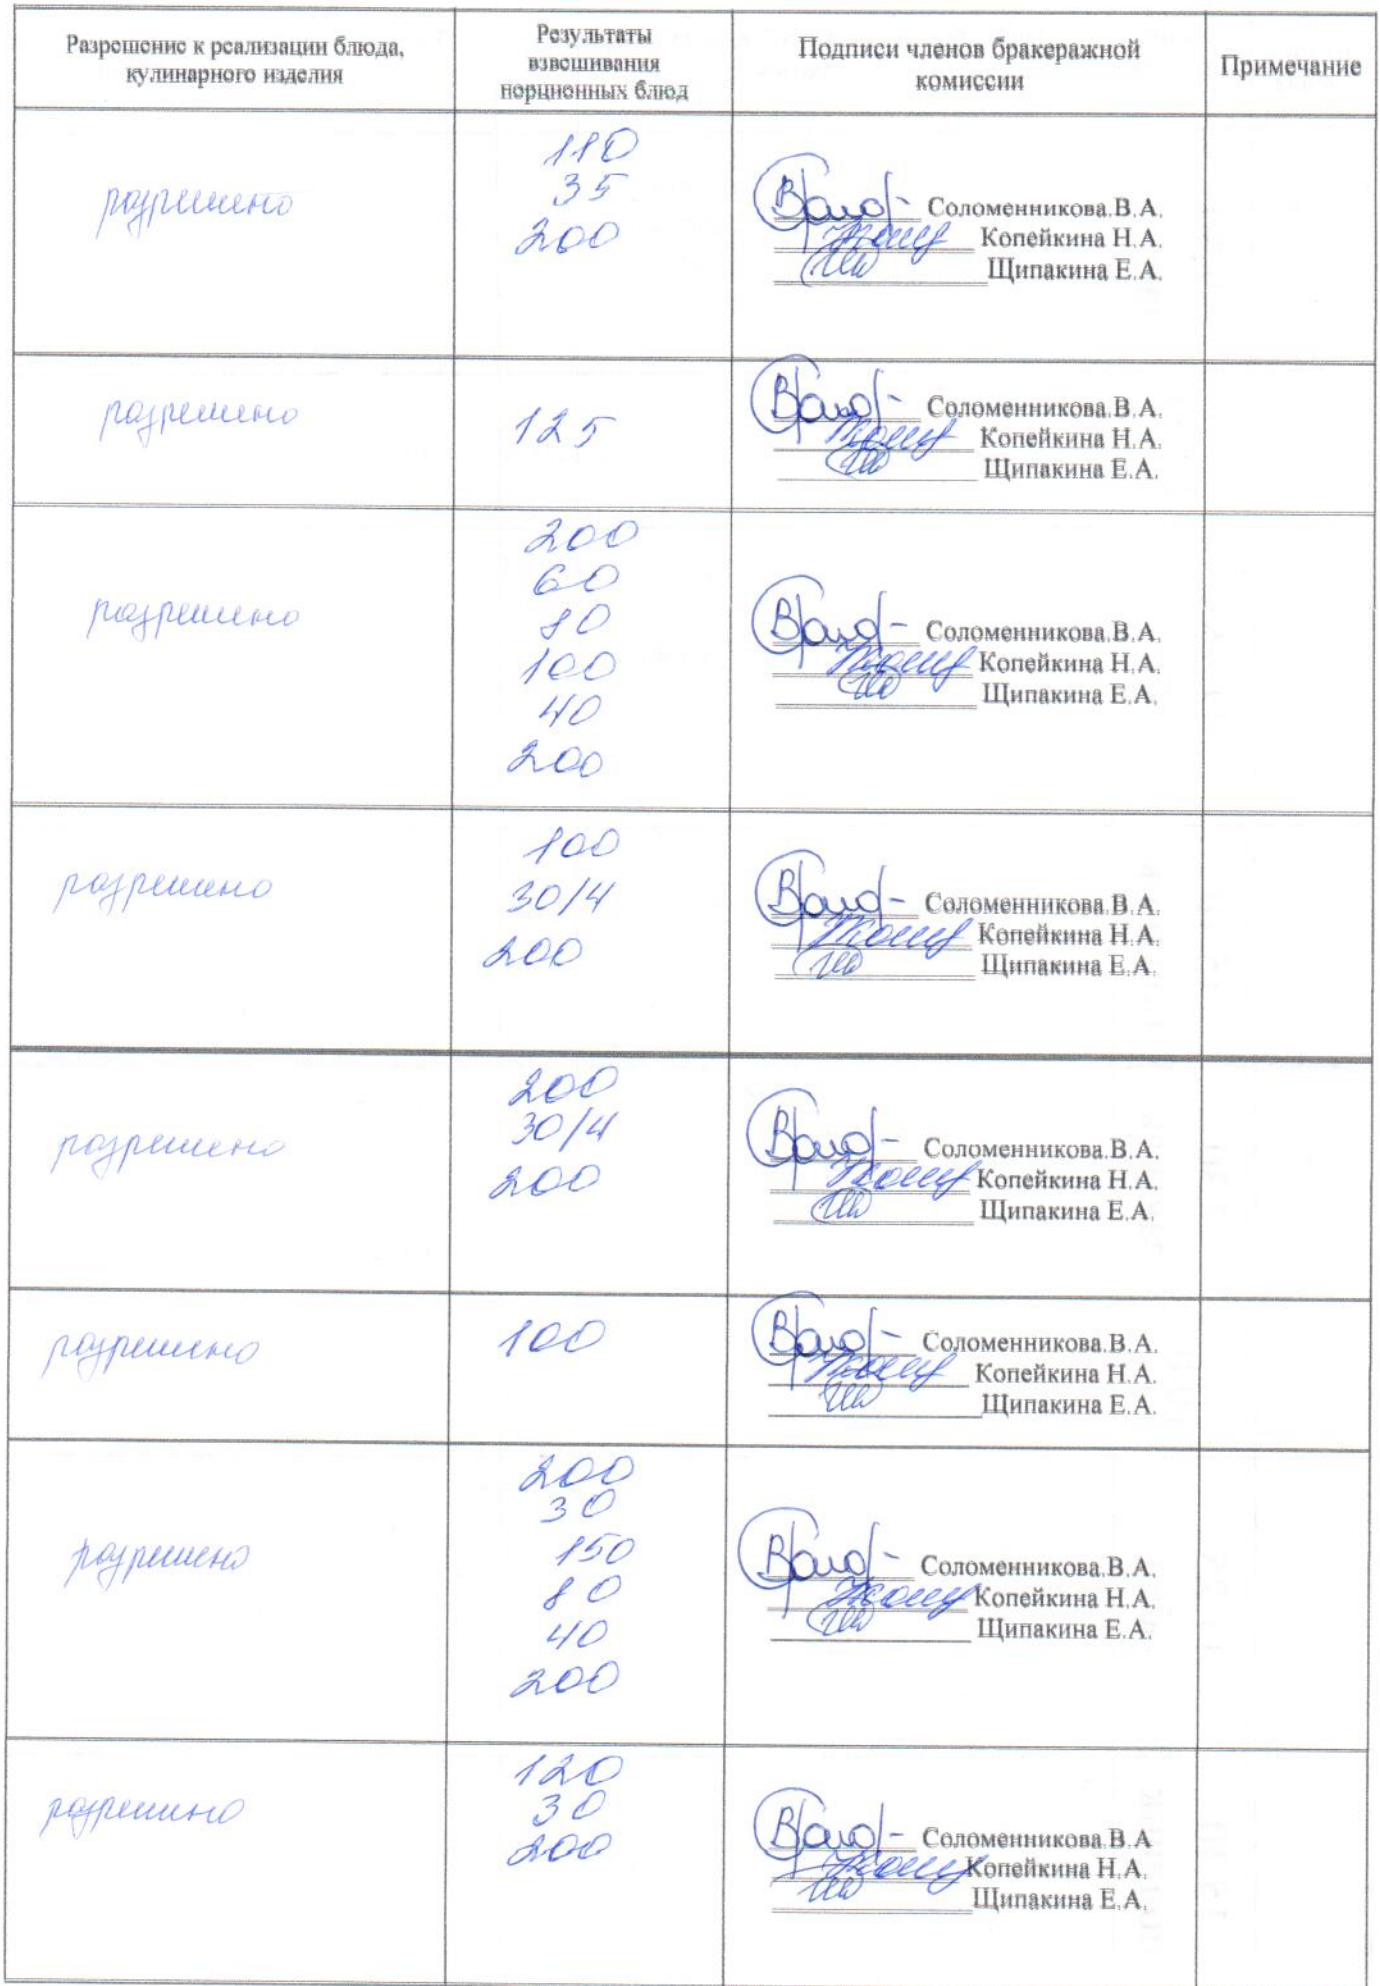 Разрешение к реализации блюда,
кулинарного изделия
Результаты
взвешивания
порционных блюд
Подписи членов бракеражной
комиссии
Примечание
разрешено
110
35
200
Соломенникова.В.А.
Копейкина Н.А.
Щипакина Е.А.
разрешено
125
Соломенникова.В.А.
Копейкина Н.А.
Щипакина Е.А.
разрешено
200
60
80
100
40
200
Соломенникова.В.А.
Копейкина Н.А.
Щипакина Е.А.
разрешено
100
30/4
200
Соломенникова.В.А.
Копейкина Н.А.
Щипакина Е.А.
разрешено
200
30/4
200
Соломенникова.В.А.
Копейкина Н.А.
Щипакина Е.А.
разрешено
100
Соломенникова.В.А.
Копейкина Н.А.
Щипакина Е.А.
разрешено
200
30
150
80
40
200
Соломенникова.В.А.
Копейкина Н.А.
Щипакина Е.А.
разрешено
120
30
200
Соломенникова.В.А
Копейкина Н.А.
Щипакина Е.А.